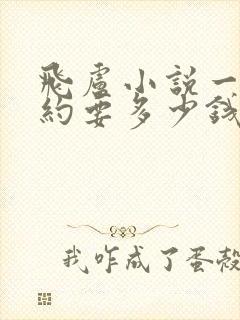 飛盧小說一
約要多少錢
我咋成了蛋殼